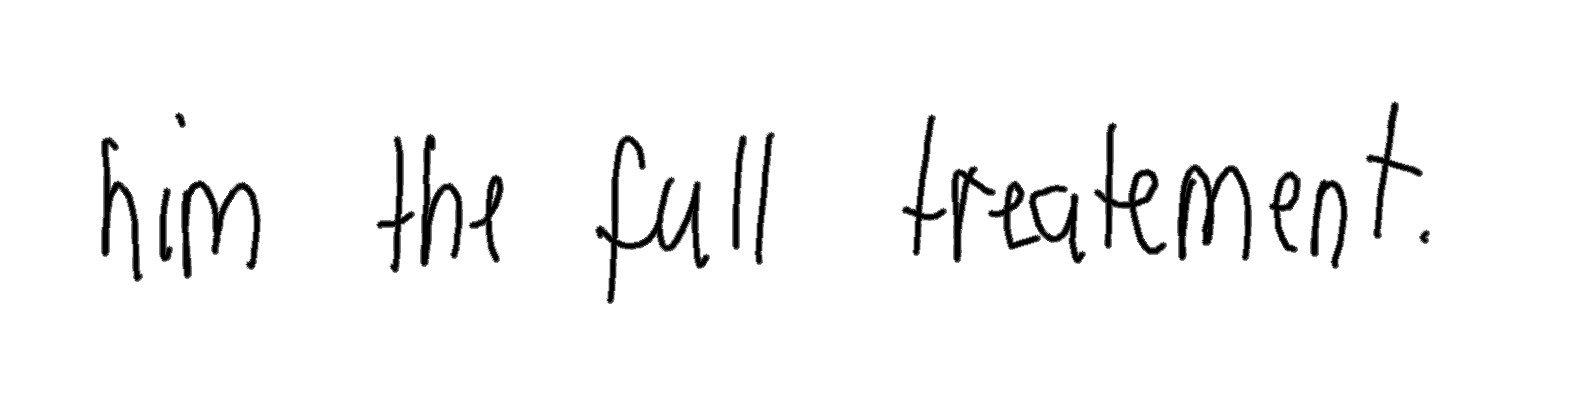 him the full treatement.